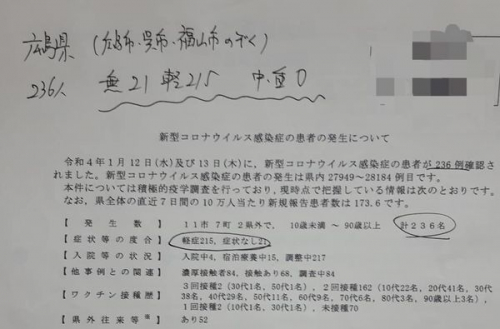 広島県 (広島市・呉市・福山市のぞく)
236人 無21 軽215 中・重0
新型コロナウイルス感染症の患者の発生について
令和4年1月12日(水)及び13日(木)に、新型コロナウイルス感染症の患者が236例確認さ
れました。新型コロナウイルス感染症の患者の発生は県内27949～28184例目です。
本件については積極的疫学調査を行っており、現時点で把握している情報は次のとおりです。
なお、県全体の直近7日間の10万人当たり新規報告患者数は173.6です。
【発生数】 11市7町2県外で、 10歳未満～90歳以上 計236名
【症状等の度合】 軽症215, 症状なし21
【入院等の状況】 入院中4, 宿泊療養中15, 調整中217
【他事例との関連】 濃厚接触者84, 接触あり68, 調査中84
【ワクチン接種歴】 3回接種2(30代1名, 50代1名), 2回接種162(10代22名, 20代41名, 30代
38名, 40代29名, 50代11名, 60代9名, 70代6名, 80代3名, 90歳以上3名),
1回接種2(10代1名, 30代1名), 未接種70
【県外往来等※】 あり52